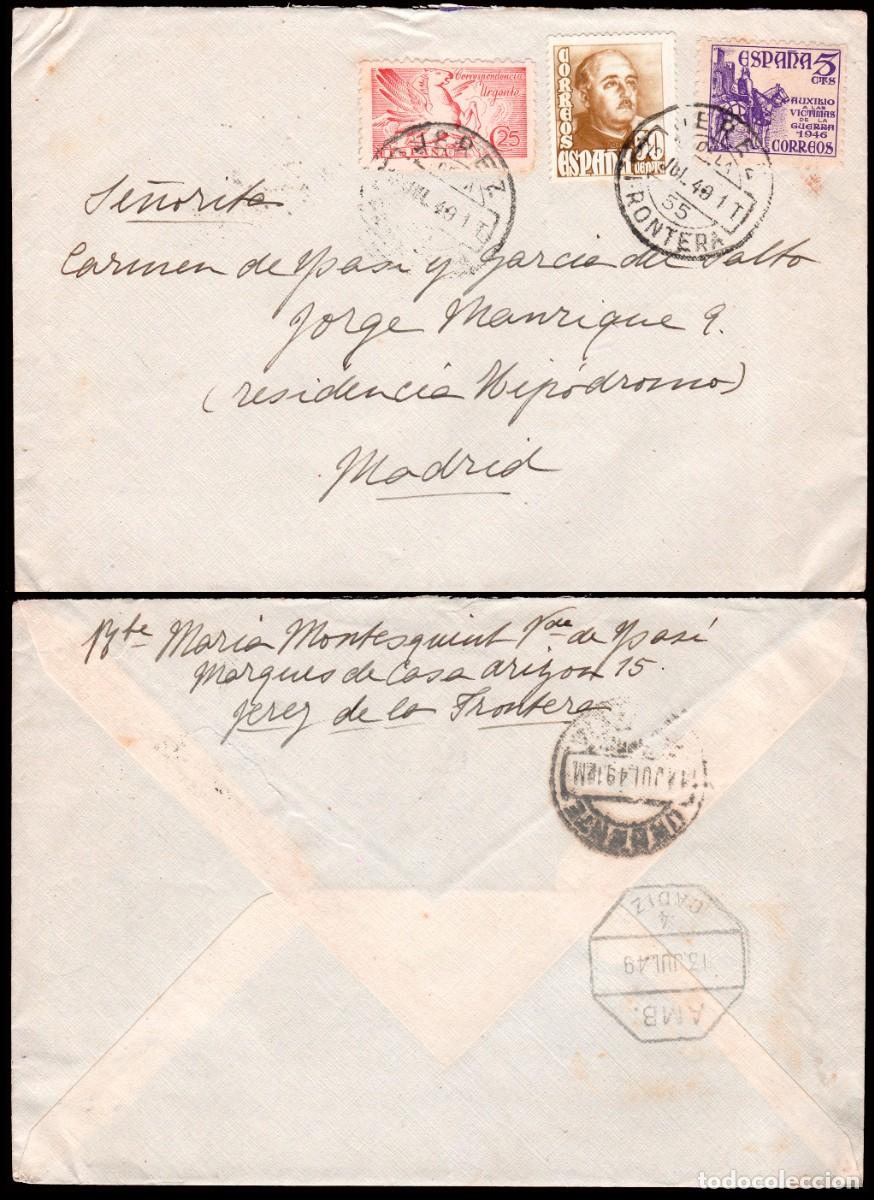 Correspondencia
Urgente
25
ESPAÑA
CORREOS
ESPAÑA
CENTS
ESPAÑA 5
CTS
AUXILIO
A LAS
VICTIMAS
DE LA
GUERRA
1946
CORREOS
JEREZ
JUL.49 1T
JEREZ
JUL.49 1T
55
FRONTERA
Señorita
Carmen de Ysasi y Garcia del Salto
Jorge Manrique 9.
(residencia Hipódromo)
Madrid
Rte Maria Montesquint Vda de Ysasi
Marques de Casa Arizon 15.
Jerez de la Frontera
14 JUL.49 12M
CADIZ
4
13.JUL.49
AMB.
todocoleccion